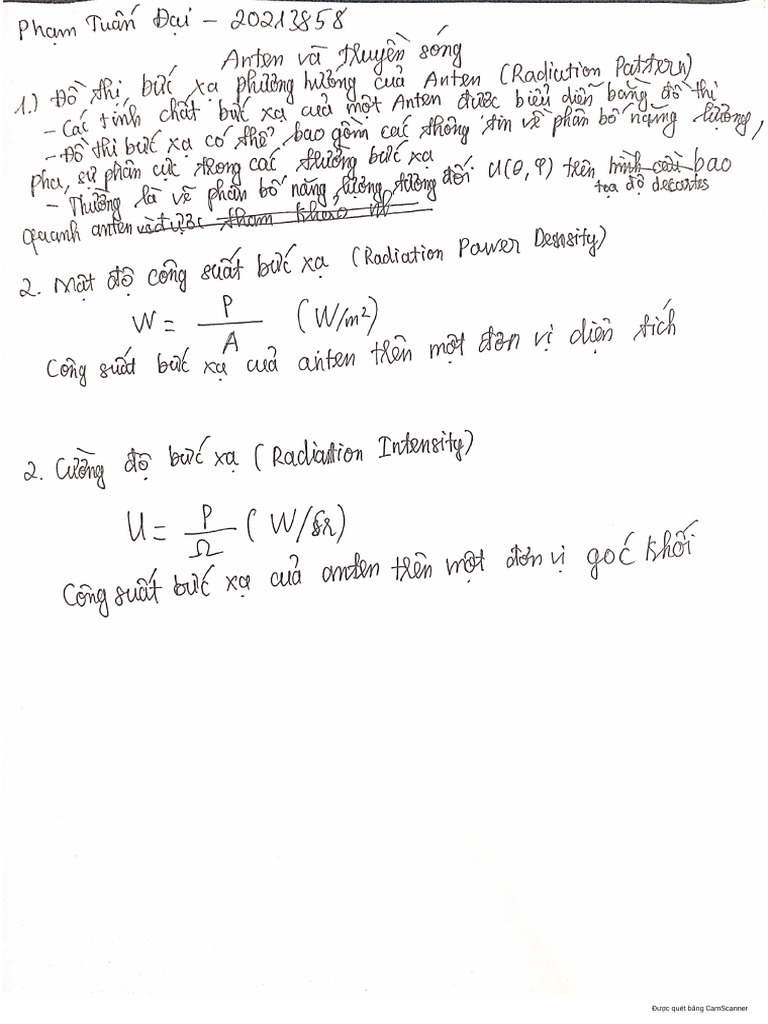 Phạm Tuấn Đại - 20213858
Anten và truyền sóng
1.) Đồ thị bức xạ phương hướng của Anten (Radiation Pattern)
- Các tính chất bức xạ của một Anten được biểu diễn bằng đồ thị
- Đồ thị bức xạ có thể bao gồm các thông tin về phân bố năng lượng,
pha, sự phân cực trong các trường bức xạ
- Thường là vẽ phân bố năng lượng tương đối U(θ, φ) trên hình cầu bao
tọa độ decartes
quanh anten và được tham khảo
2. Mật độ công suất bức xạ (Radiation Power Density)
W = P/A (W/m²)
Công suất bức xạ của anten trên một đơn vị diện tích
2. Cường độ bức xạ (Radiation Intensity)
U = P/Ω (W/Sr)
Công suất bức xạ của anten trên một đơn vị góc khối
Được quét bằng CamScanner